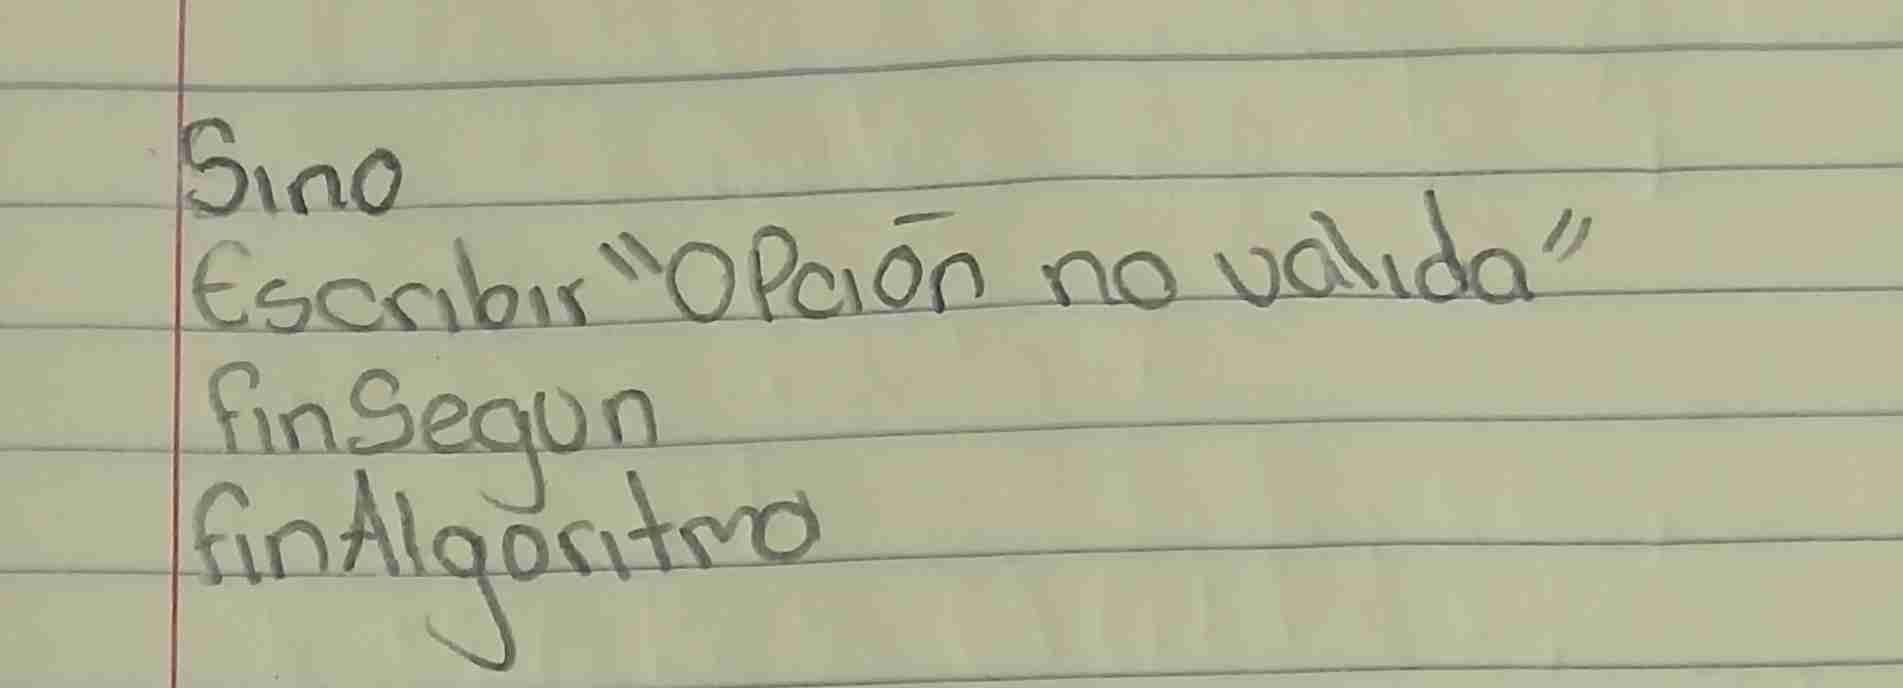 Sino
Escribir "Opción no valida"
finSegun
finAlgoritmo